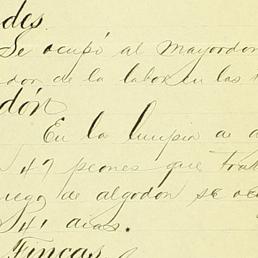 des.
Se ocupó al Mayordom
dor de la labor en las
dón
En la limpia de a
47 peones que trab
riego de algodon se oc
41 dias.
Fincas